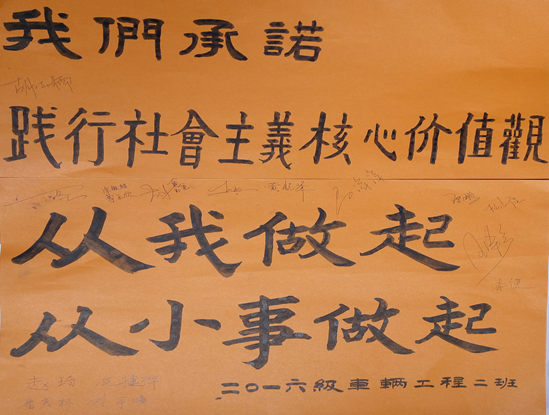 我們承諾
践行社會主義核心价值觀
从我做起
从小事做起
二〇一六級車輛工程二班